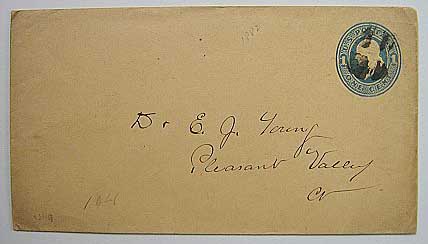 U.S. POSTAGE
1 ONE CENT 1
Dr E. J. Young
Pleasant Valley
Ct